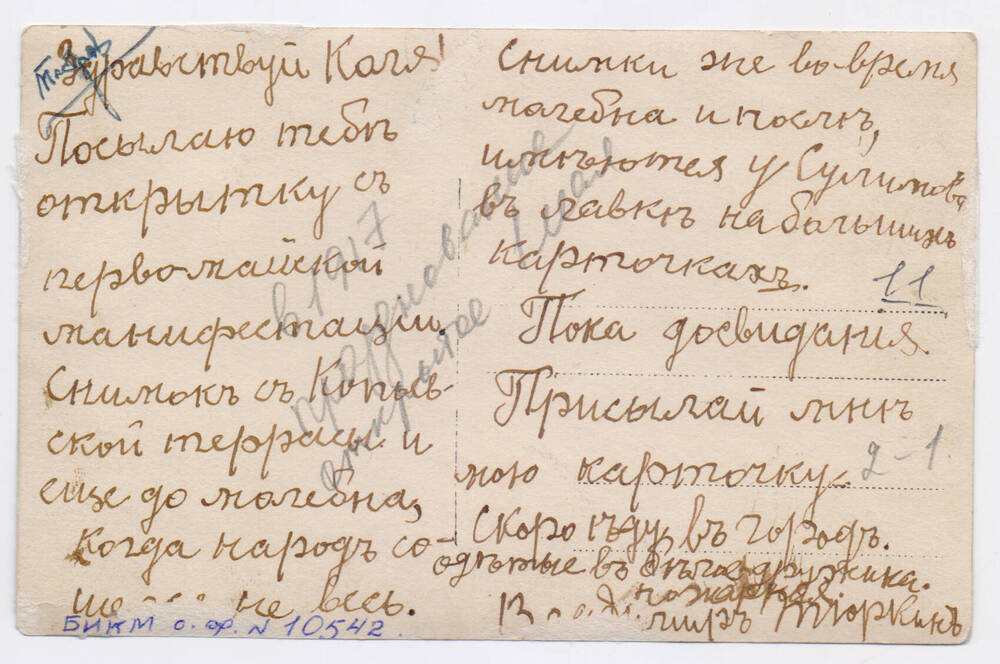 Здравствуй Коля!
Посылаю тебѣ
открытку съ
первомайской
манифестации.
Снимокъ съ
ской террасы и
еще до молебна,
когда народъ со-
не весь.
Снимки же во время
молебна и послѣ,
имѣются у Сулимова
въ лавкѣ на большихъ
карточкахъ.
Пока досвидания
Присылай мнѣ
мою карточку.
Скоро ѣду въ городъ.
одѣтые въ дружина.
пожарная
Тюркинъ
в 1917
празднование
1 мая
открытое
11
2-1
БИКМ о.ф. N 10542